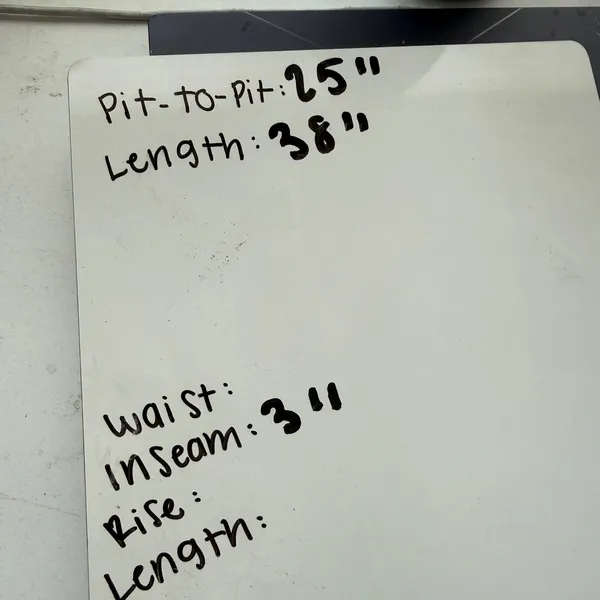 Pit-to-Pit: 25"
Length: 38"
Waist:
Inseam: 3"
Rise:
Length: